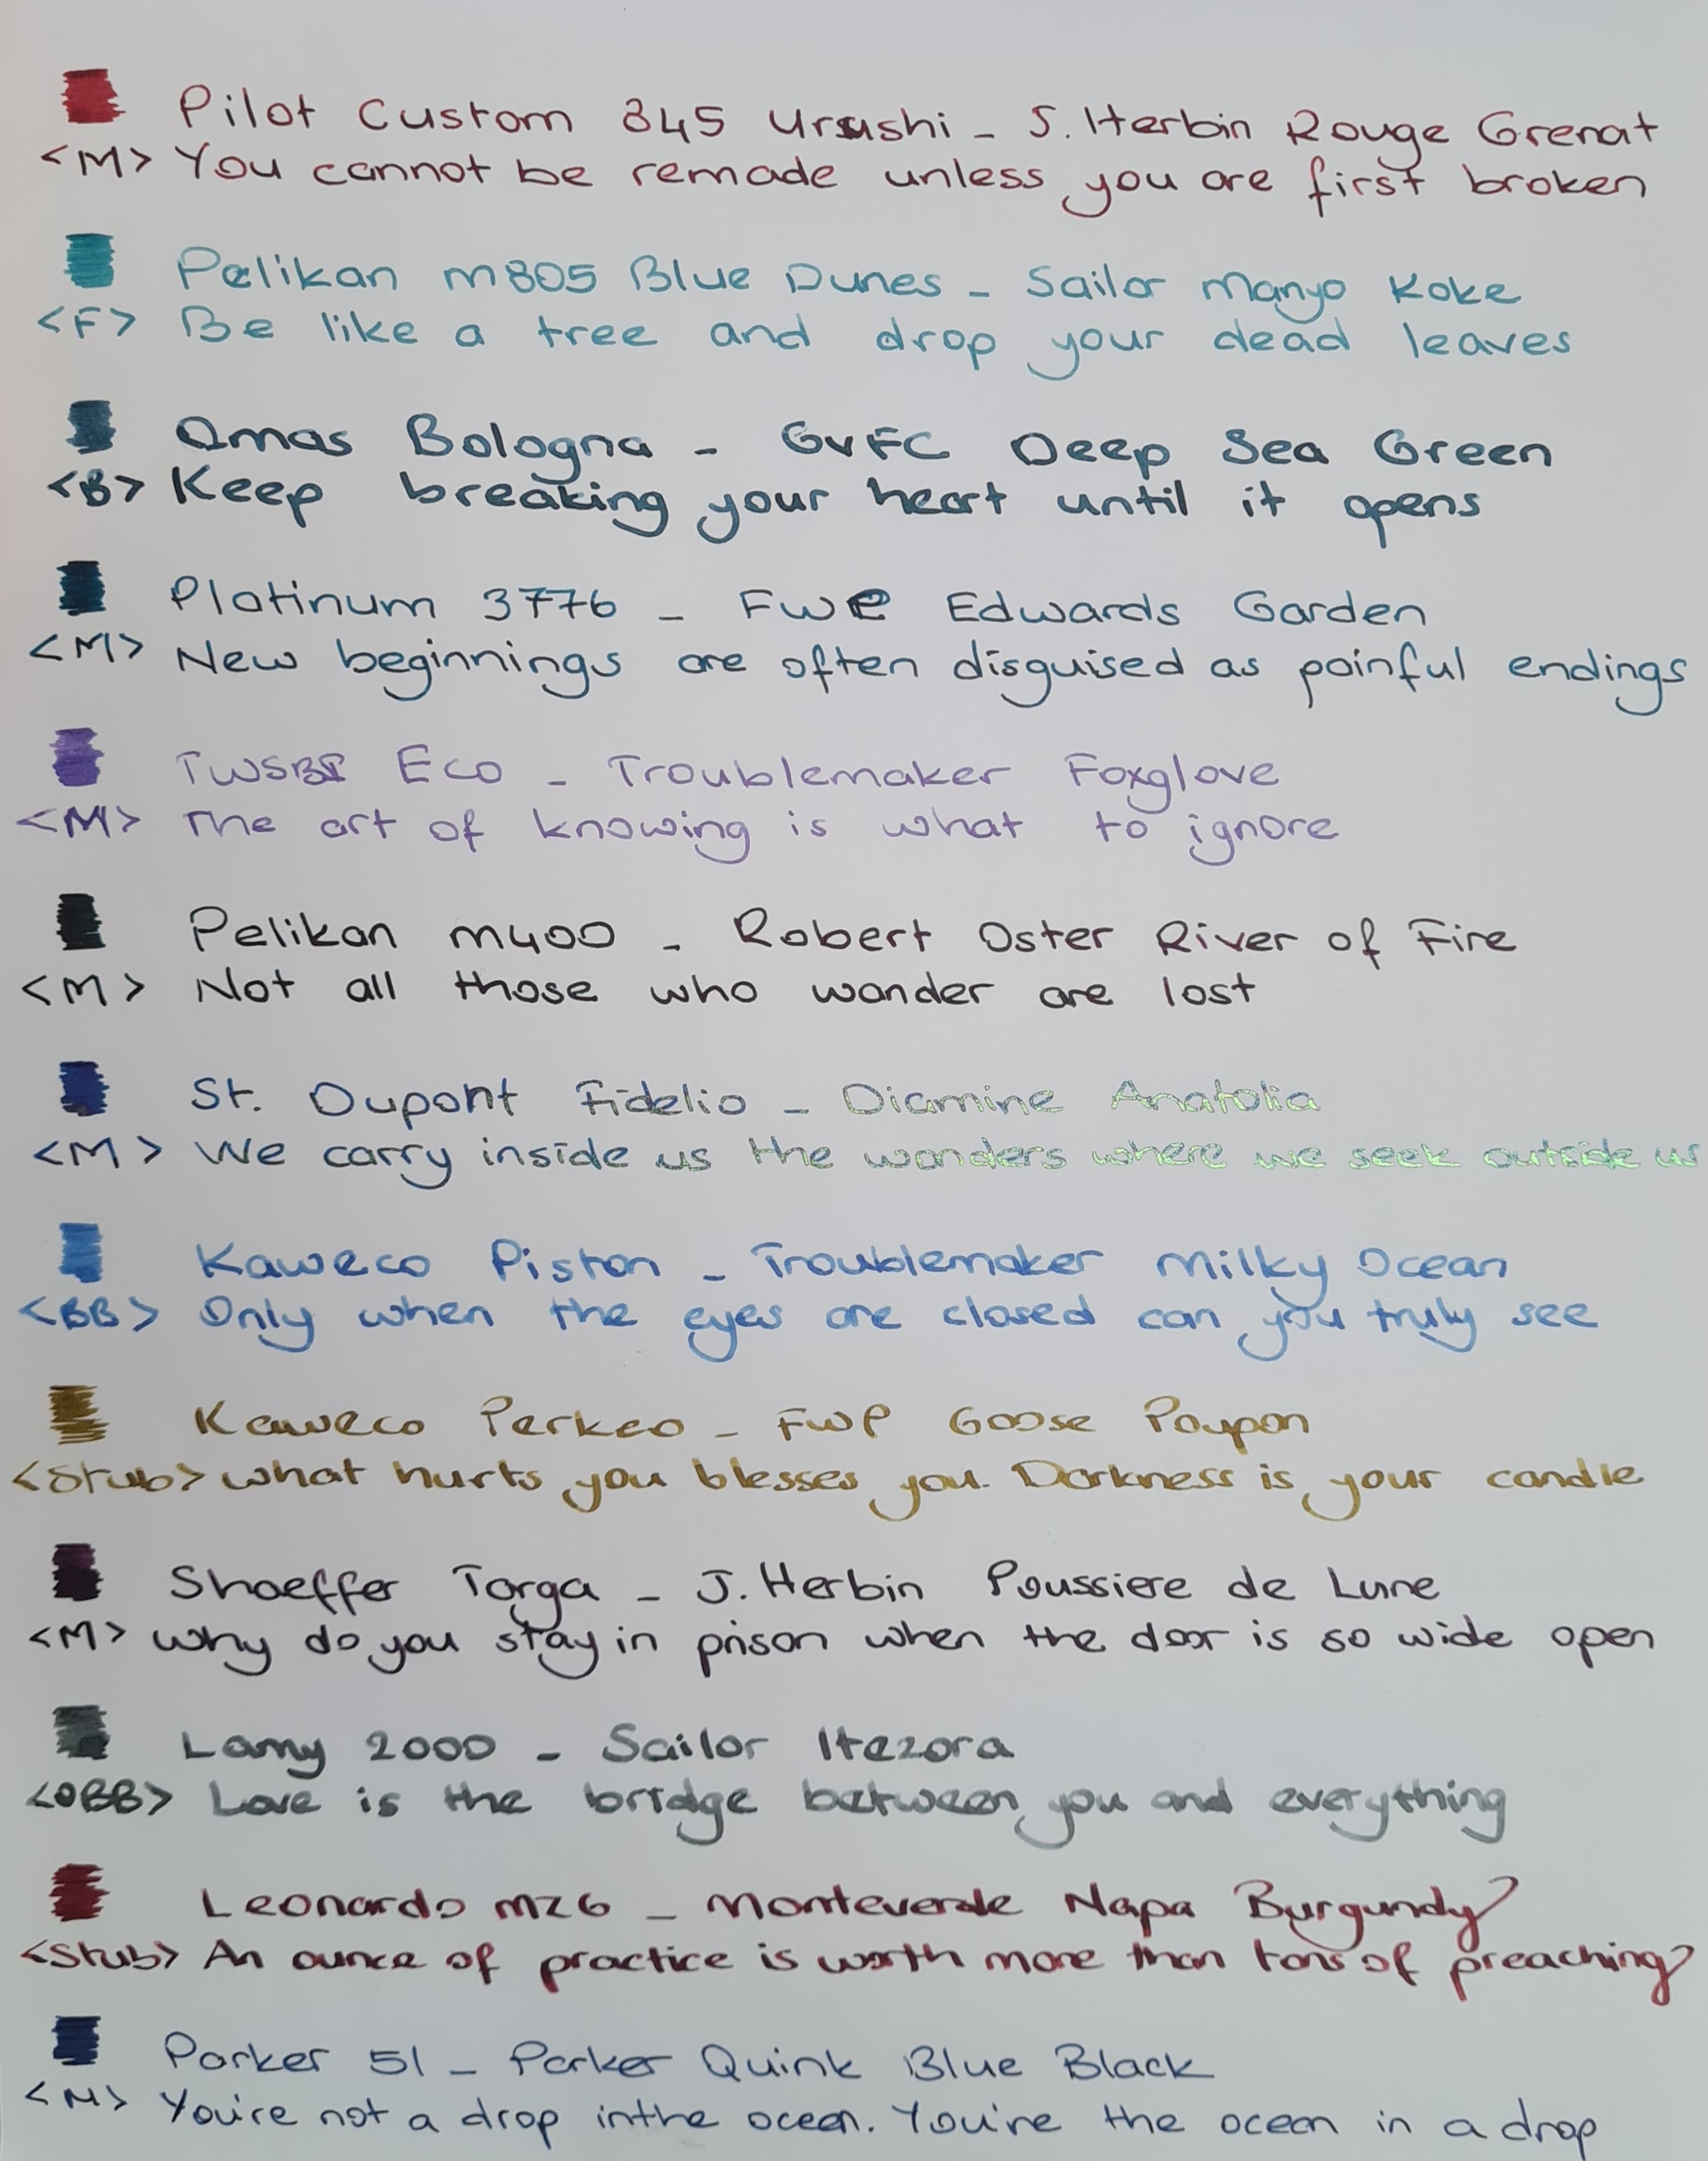 Pilot Custom 845 Urushi - J. Herbin Rouge Grenat
<M> You cannot be remade unless you are first broken
Pelikan m805 Blue Dunes - Sailor Manyo Koke
<F> Be like a tree and drop your dead leaves
Omas Bologna - GvFC Deep Sea Green
<B> Keep breaking your heart until it opens
Platinum 3776 - FWP Edwards Garden
<M> New beginnings are often disguised as painful endings
TWSBI Eco - Troublemaker Foxglove
<M> The art of knowing is what to ignore
Pelikan m400 - Robert Oster River of Fire
<M> Not all those who wander are lost
St. Dupont Fidelio - Diamine Anatolia
<M> We carry inside us the wonders where we seek outside us
Kaweco Piston - Troublemaker Milky Ocean
<BB> Only when the eyes are closed can you truly see
Kaweco Perkeo - FWP Goose Poupon
<Stub> What hurts you blesses you. Darkness is your candle
Shaeffer Targa - J. Herbin Poussiere de Lune
<M> Why do you stay in prison when the door is so wide open
Lamy 2000 - Sailor Itezora
<OBB> Love is the bridge between you and everything
Leonardo MZ6 - Monteverde Napa Burgundy
<Stub> An ounce of practice is worth more than tons of preaching
Parker 51 - Parker Quink Blue Black
<M> You're not a drop in the ocean. You're the ocean in a drop